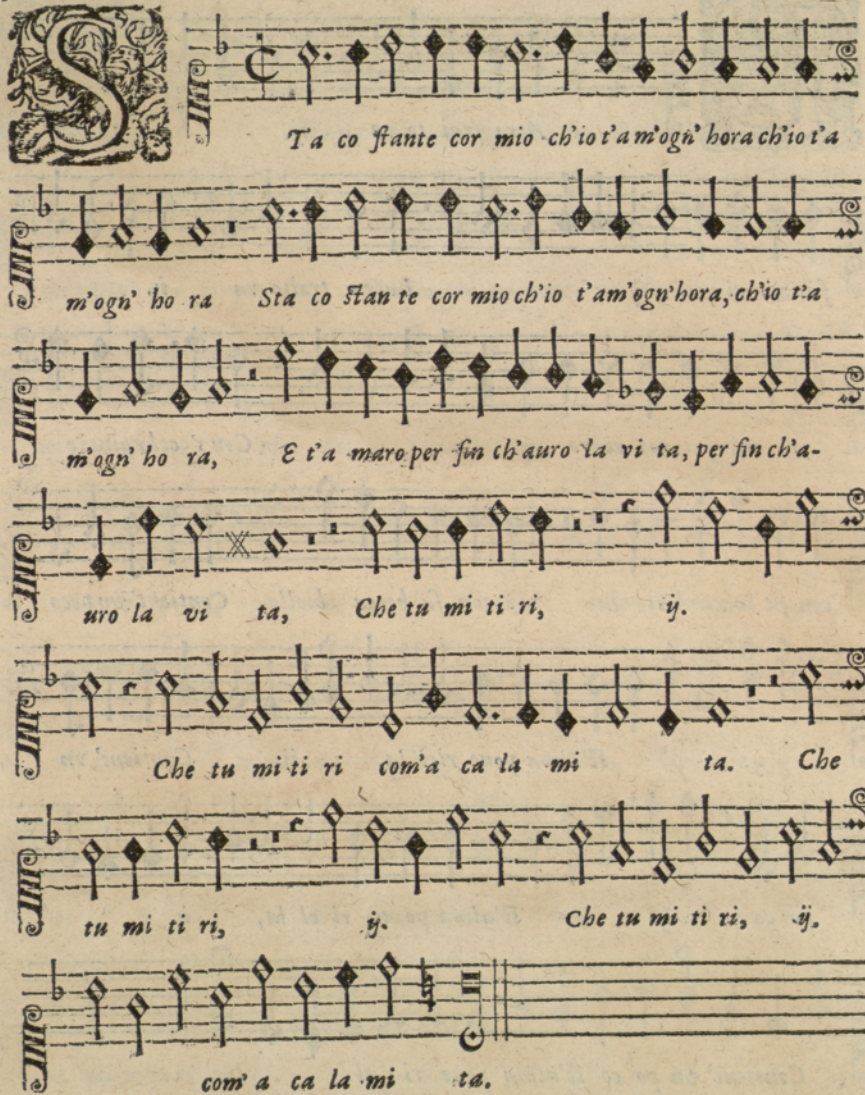 S
Ta co stante cor mio ch'io t'a m'ogn' hora ch'io t'a
m'ogn' ho ra Sta co stan te cor mio ch'io t'am'ogn'hora, ch'io t'a
m'ogn' ho ra, E t'a maro per fin ch'auro la vi ta, per fin ch'a-
uro la vi ta, Che tu mi ti ri, ij.
Che tu mi ti ri com'a ca la mi ta. Che
tu mi ti ri, ij. Che tu mi ti ri, ij.
com' a ca la mi ta.